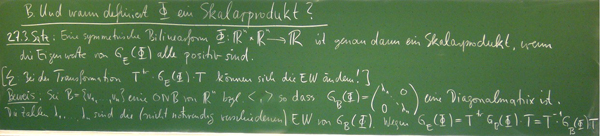 B. Und wann definiert Φ ein Skalarprodukt?
27.3 Satz: Eine symmetrische Bilinearform Φ: ℝⁿ×ℝⁿ→ℝ ist genau dann ein Skalarprodukt, wenn
die Eigenwerte von G_E(Φ) alle positiv sind.
[ Bei der Transformation Tᵗ·G_E(Φ)·T können sich die EW ändern! ]
Beweis: Sei B = {v₁, , vₙ} eine ONB von ℝⁿ bzgl. < , > so dass G_B(Φ) = (λ₁ 0 0 λₙ) eine Diagonalmatrix ist.
Die Zahlen λ₁, , λₙ sind die (nicht notwendig verschiedenen) EW von G_B(Φ). Wegen G_B(Φ) = Tᵗ G_E(Φ)·T = T⁻¹ G_E(Φ) T